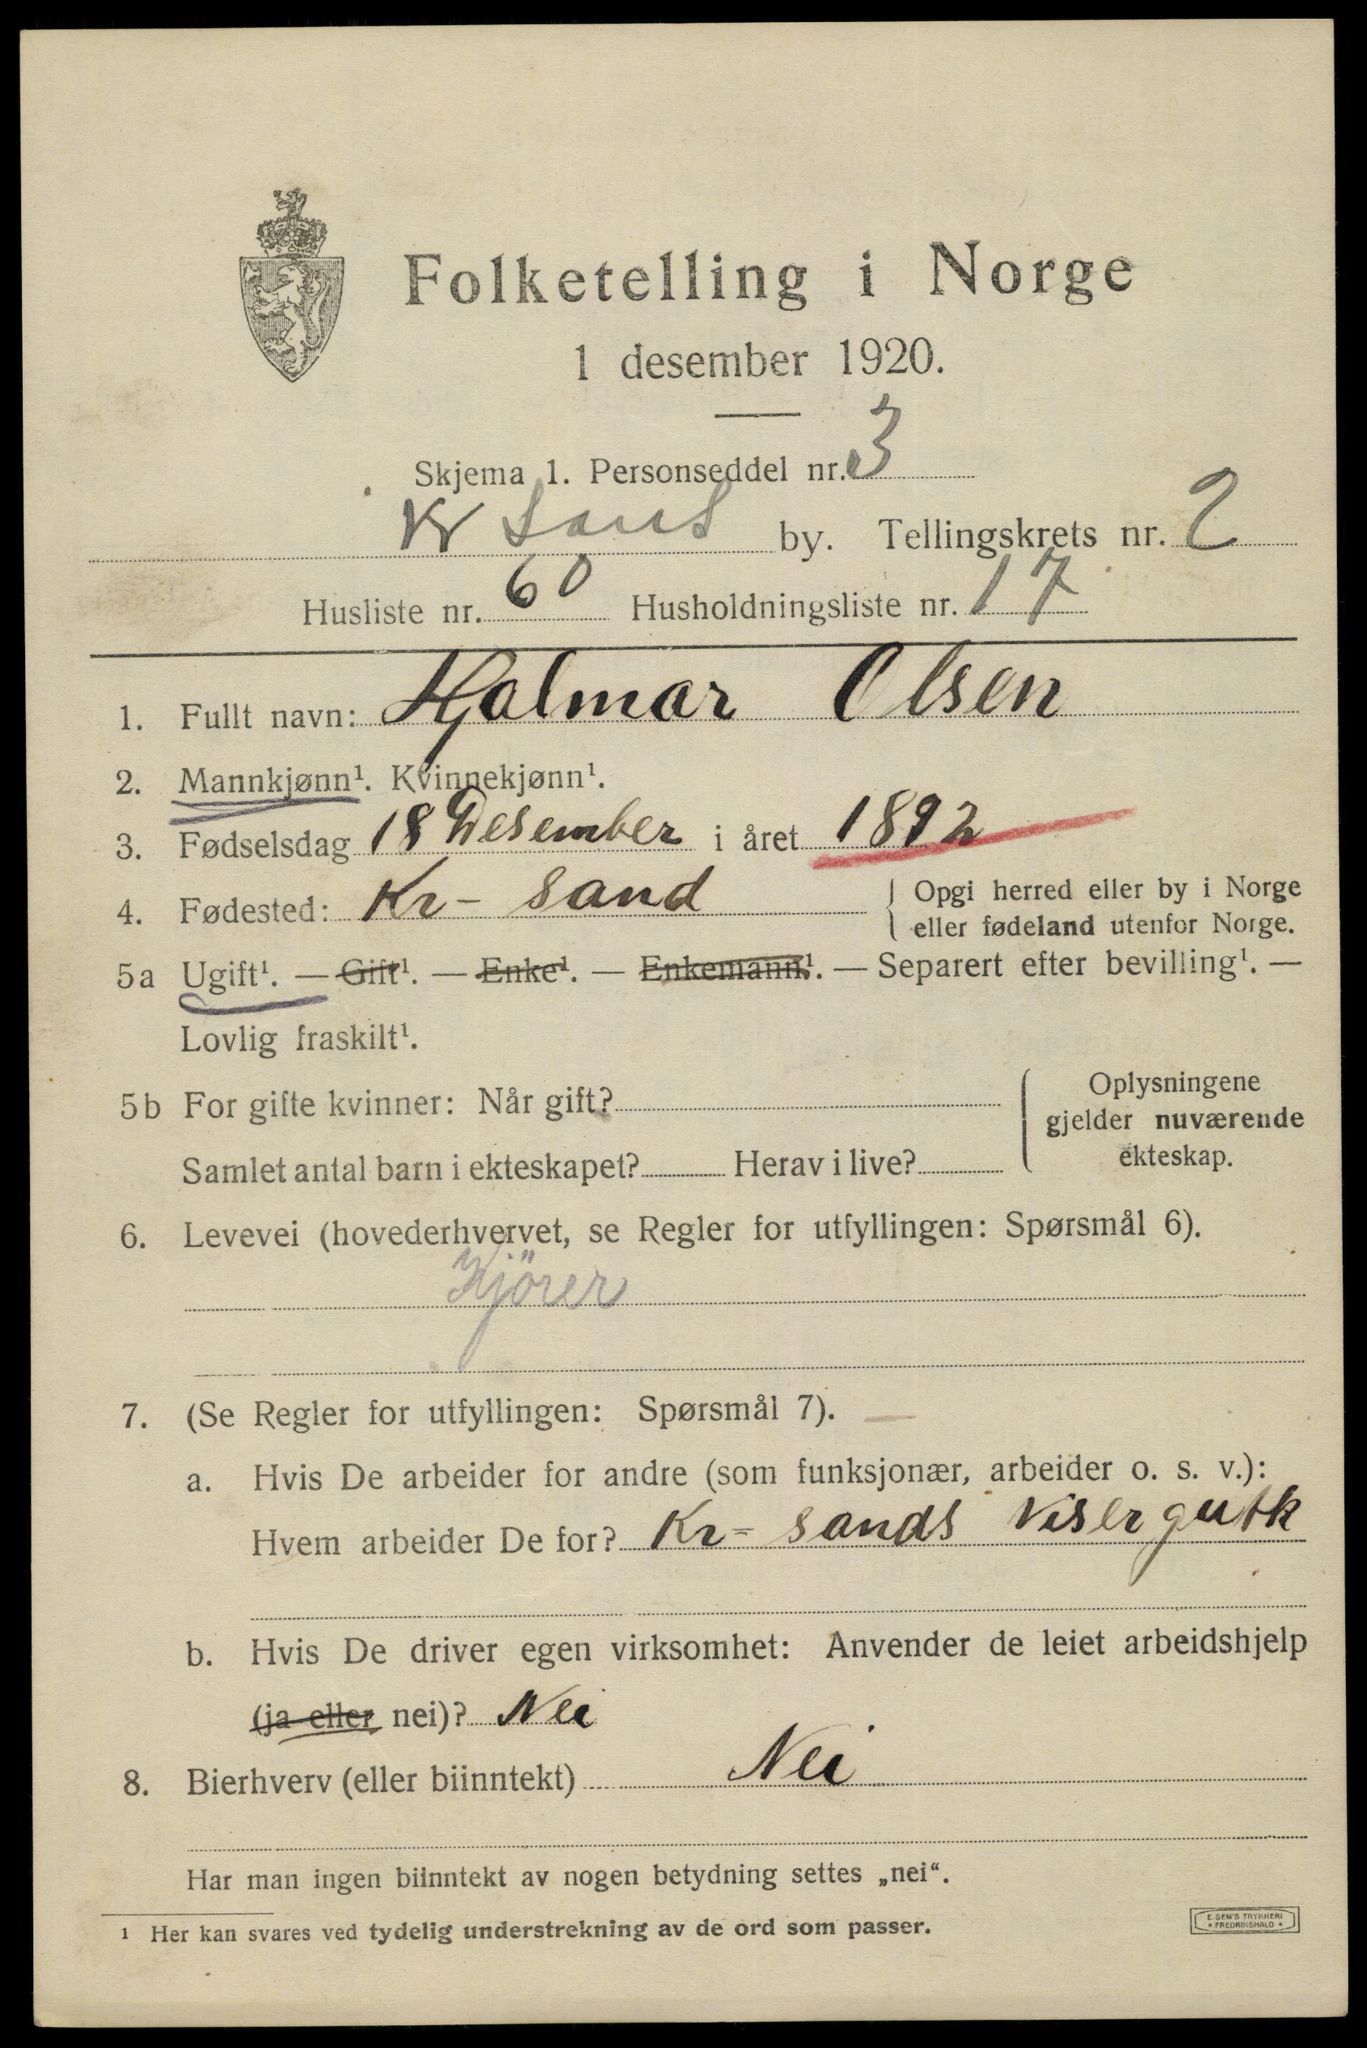 Folketelling i Norge
1 desember 1920.
Skjema 1. Personseddel nr. 3
Kr Sans by. Tellingskrets nr. 2
Husliste nr. 60 Husholdningsliste nr. 17
1. Fullt navn: Hjalmar Olsen
2. Mannkjønn¹. Kvinnekjønn¹.
3. Fødselsdag 18 Desember i året 1892
4. Fødested: Kr- sand { Opgi herred eller by i Norge
eller fødeland utenfor Norge.
5a Ugift¹. — Gift¹. — Enke¹. — Enkemann¹. — Separert efter bevilling¹. —
Lovlig fraskilt¹.
5b For gifte kvinner: Når gift?
Samlet antal barn i ekteskapet? Herav i live?
Oplysningene
gjelder nuværende
ekteskap.
6. Levevei (hovederhvervet, se Regler for utfyllingen: Spørsmål 6).
Kjörer
7. (Se Regler for utfyllingen: Spørsmål 7).
a. Hvis De arbeider for andre (som funksjonær, arbeider o. s. v.):
Hvem arbeider De for? Kr- sands Visergutk
b. Hvis De driver egen virksomhet: Anvender de leiet arbeidshjelp
(ja eller nei)? Nei
8. Bierhverv (eller biinntekt) Nei
Har man ingen biinntekt av nogen betydning settes „nei“.
¹ Her kan svares ved tydelig understrekning av de ord som passer.
E. SEM'S TRYKKERI
FREDRIKSHALD